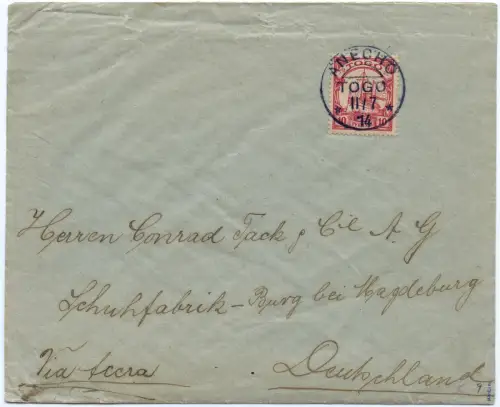 ANECHO
TOGO
TOGO
11/7
14
10 10
Herren Conrad Tack & Cie A. G
Schuhfabrik - Burg bei Magdeburg
Via Accra
Deutschland